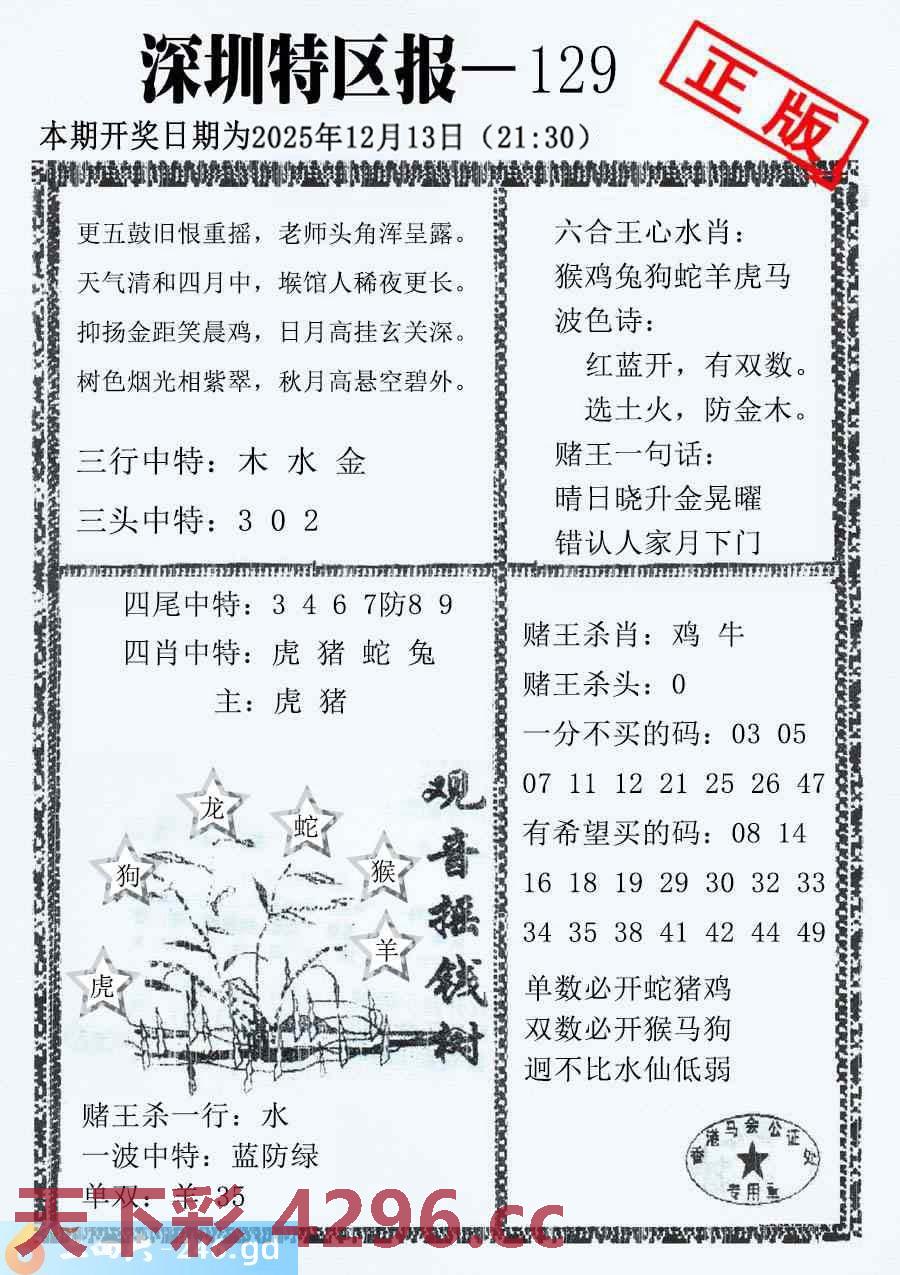 深圳特区报—129
正版
本期开奖日期为2025年12月13日（21:30）
更五鼓旧恨重摇，老师头角浑呈露。
天气清和四月中，堠馆人稀夜更长。
抑扬金距笑晨鸡，日月高挂玄关深。
树色烟光相紫翠，秋月高悬空碧外。
三行中特：木 水 金
三头中特：3 0 2
六合王心水肖：
猴鸡兔狗蛇羊虎马
波色诗：
红蓝开，有双数。
选土火，防金木。
赌王一句话：
晴日晓升金晃曜
错认人家月下门
四尾中特：3 4 6 7防8 9
四肖中特：虎 猪 蛇 兔
主：虎 猪
观音摇钱树
龙
蛇
狗
猴
羊
虎
赌王杀一行：水
一波中特：蓝防绿
单双：羊 35
赌王杀肖：鸡 牛
赌王杀头：0
一分不买的码：03 05
07 11 12 21 25 26 47
有希望买的码：08 14
16 18 19 29 30 32 33
34 35 38 41 42 44 49
单数必开蛇猪鸡
双数必开猴马狗
迥不比水仙低弱
香港马会公证处
专用章
天下彩 4296.cc